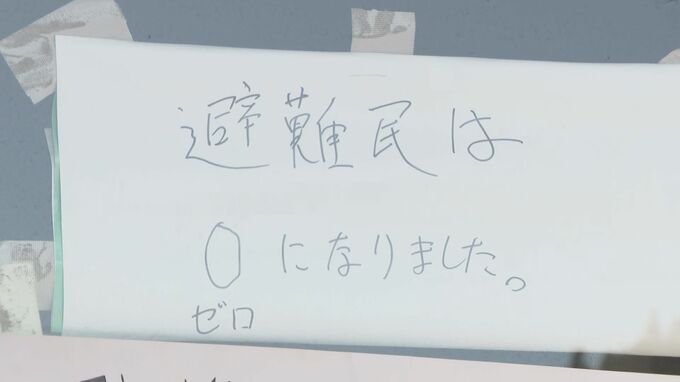 避難民は
0になりました。
ゼロ